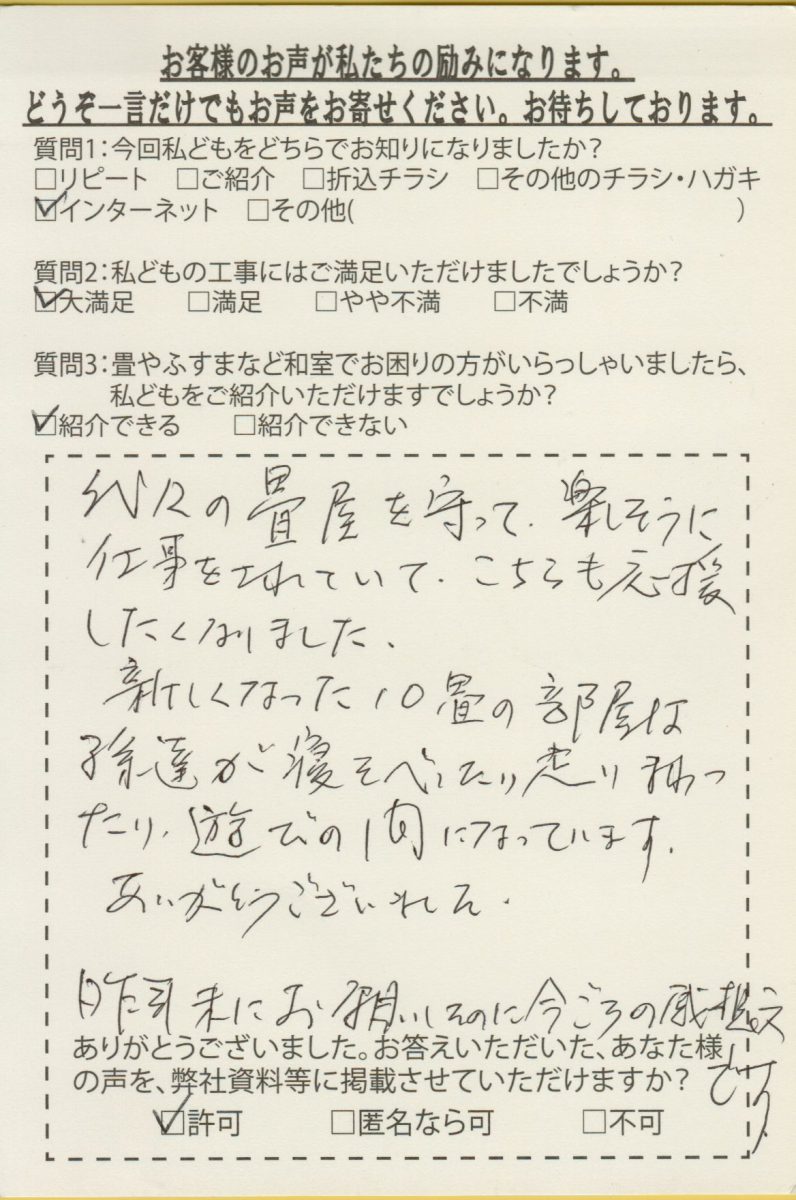 お客様のお声が私たちの励みになります。
どうぞ一言だけでもお声をお寄せください。お待ちしております。
質問1:今回私どもをどちらでお知りになりましたか?
□リピート □ご紹介 □折込チラシ □その他のチラシ・ハガキ
☑インターネット □その他( )
質問2:私どもの工事にはご満足いただけましたでしょうか?
☑大満足 □満足 □やや不満 □不満
質問3:畳やふすまなど和室でお困りの方がいらっしゃいましたら、
私どもをご紹介いただけますでしょうか?
☑紹介できる □紹介できない
代々の畳屋を守って、楽しそうに
仕事をされていて、こちらも応援
したくなりました。
新しくなった10畳の部屋は
孫達が寝そべったり走り廻っ
たり、遊びの間になっています。
ありがとうございました。
昨年末にお願いしたのに今ごろの感想文
です。
ありがとうございました。お答えいただいた、あなた様
の声を、弊社資料等に掲載させていただけますか?
☑許可 □匿名なら可 □不可